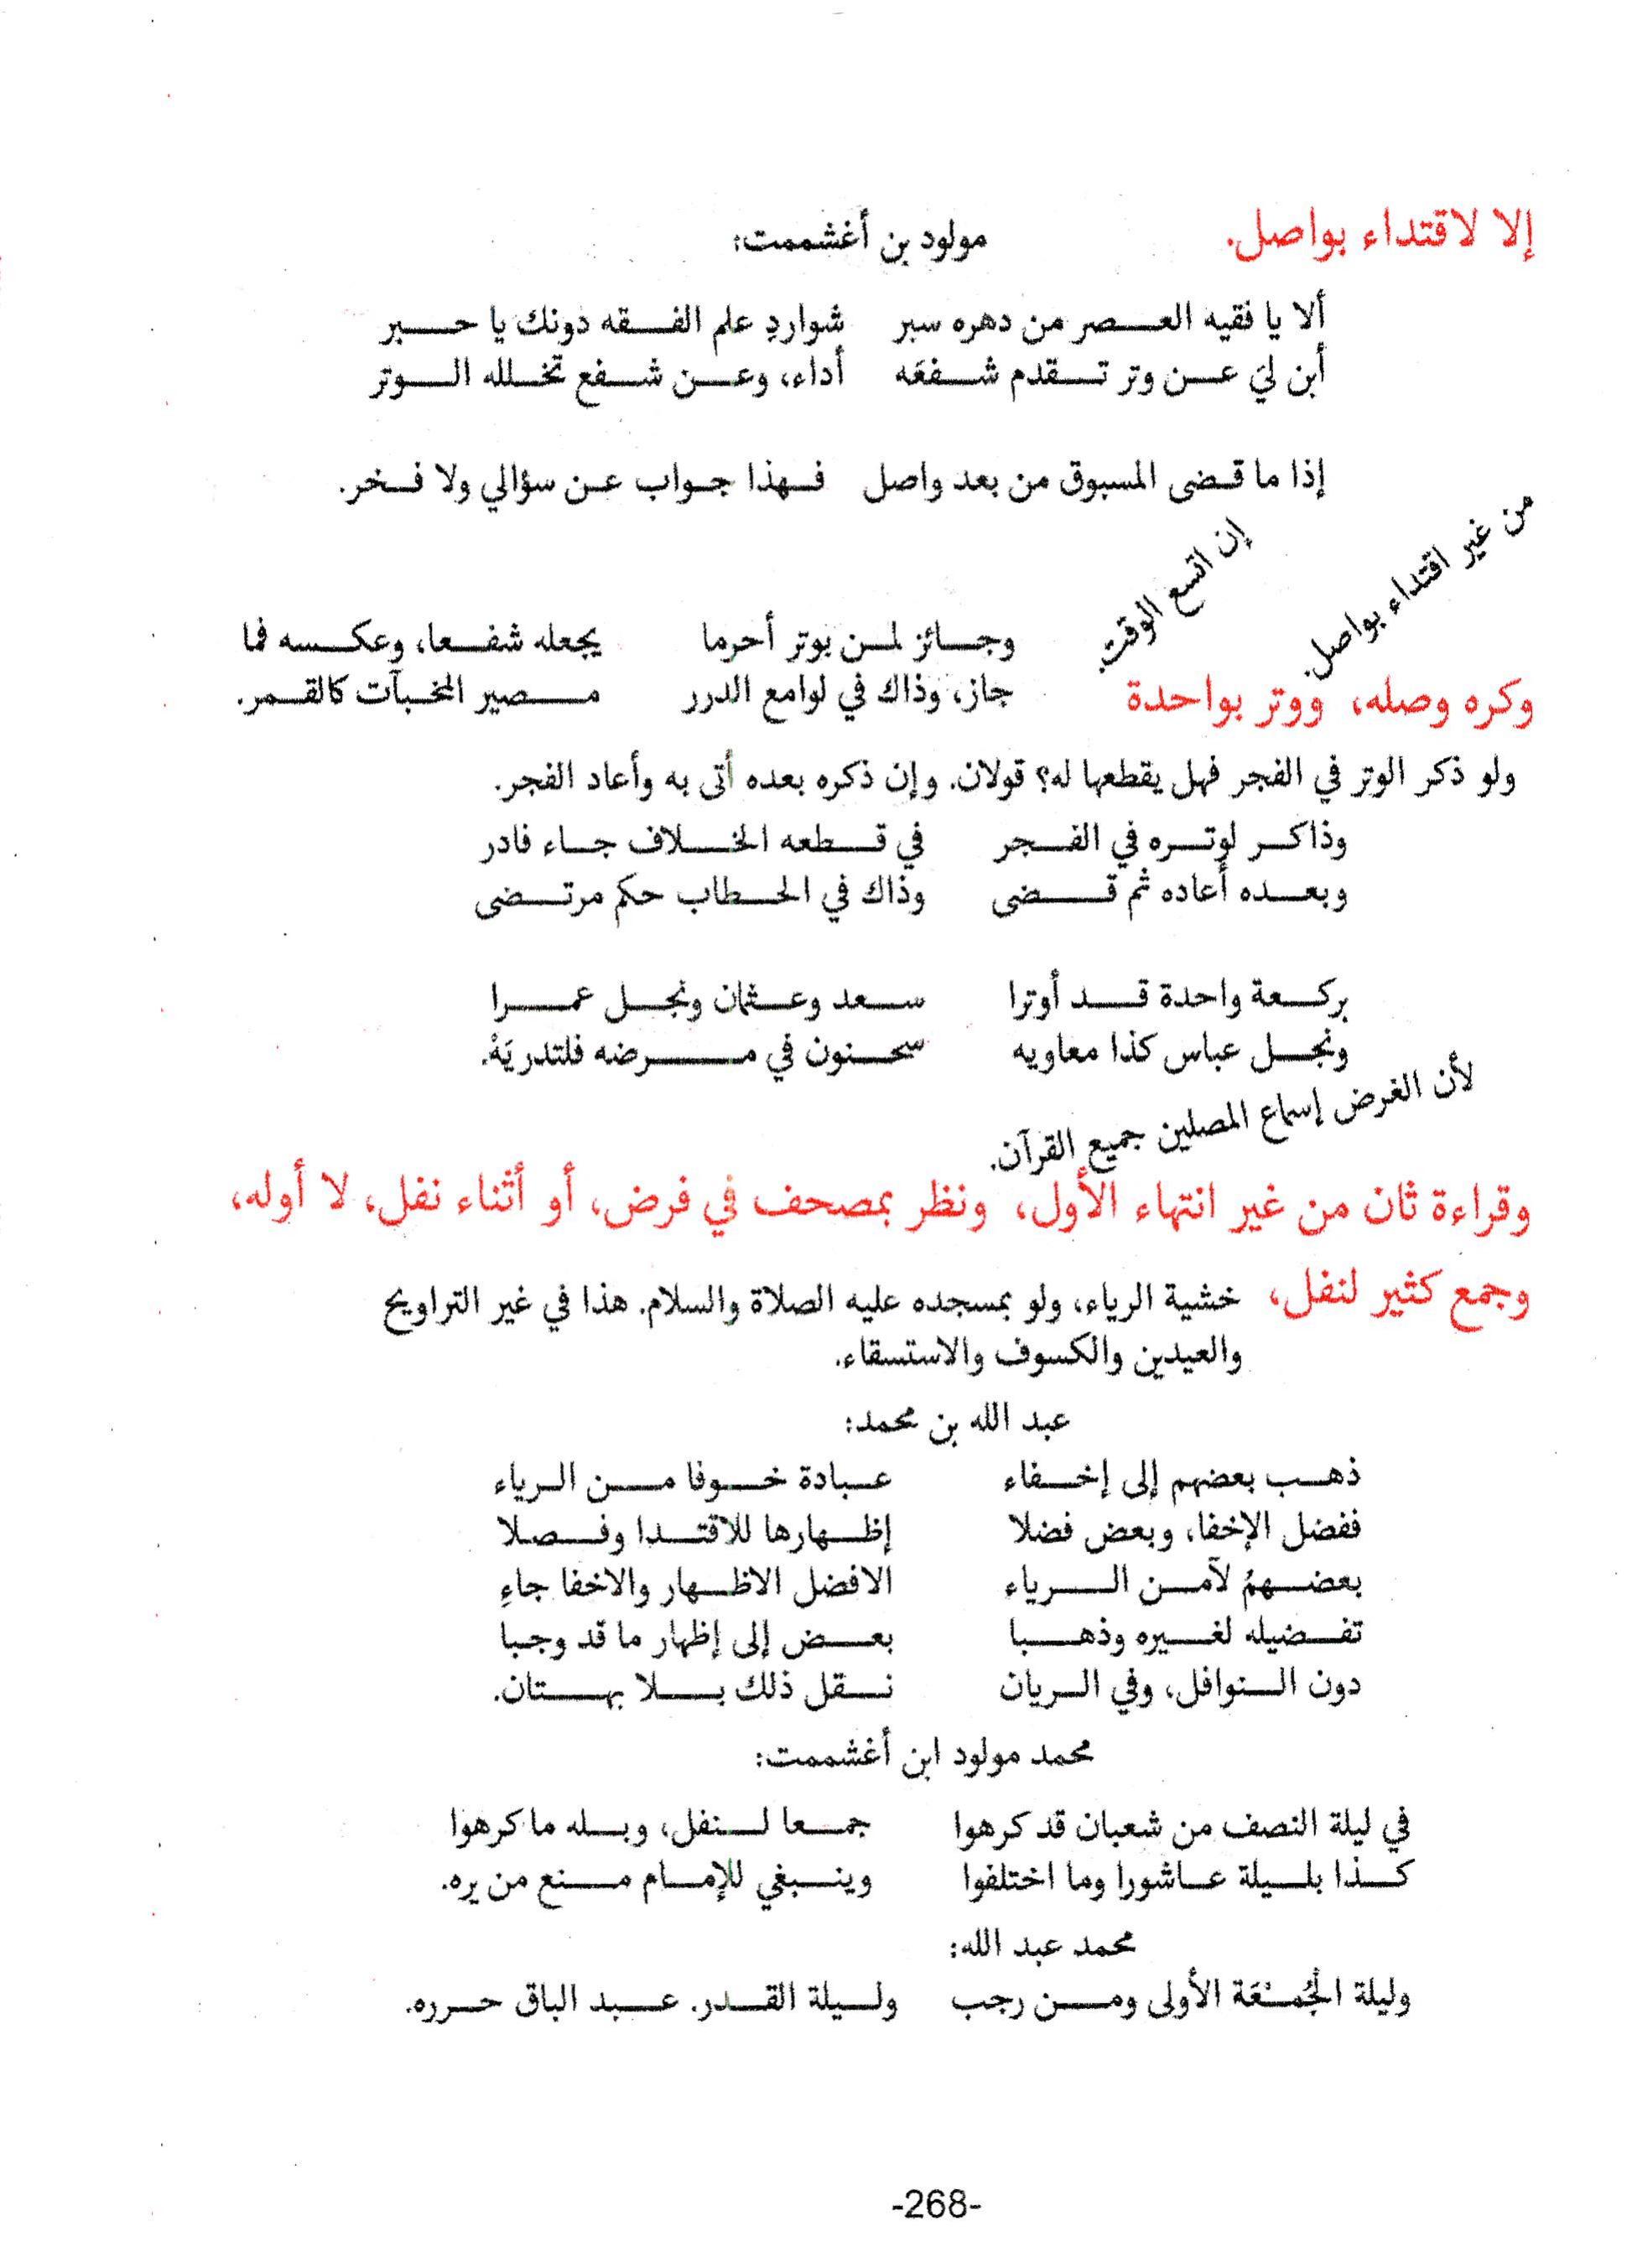 إلا لاقتداء بواصل.
مولود بن أغشممت:
ألا يا فقيه العصر من دهره سبر شواردِ علم الفقه دونك يا حبر
أبن ليَ عن وتر تقدم شفعَه أداء، وعن شفع تخلله الوتر
إذا ما قضى المسبوق من بعد واصل فهذا جواب عن سؤالي ولا فخر.
من غير اقتداء بواصل.
إن اتسع الوقت.
وجائز لمن بوتر أحرما يجعله شفعا، وعكسه فما
جاز، وذاك في لوامع الدرر مصير المخبآت كالقمر.
وكره وصله، ووتر بواحدة
ولو ذكر الوتر في الفجر فهل يقطعها له؟ قولان. وإن ذكره بعده أتى به وأعاد الفجر.
وذاكر لوتره في الفجر في قطعه الخلاف جاء فادر
وبعده أعاده ثم قضى وذاك في الحطاب حكم مرتضى
بركعة واحدة قد أوترا سعد وعثمان ونجل عمرا
ونجل عباس كذا معاويه سحنون في مرضه فلتدريَهْ.
لأن الغرض إسماع المصلين جميع القرآن.
وقراءة ثان من غير انتهاء الأول، ونظر بمصحف في فرض، أو أثناء نفل، لا أوله،
وجمع كثير لنفل، خشية الرياء، ولو بمسجده عليه الصلاة والسلام. هذا في غير التراويح
والعيدين والكسوف والاستسقاء.
عبد الله بن محمد:
ذهب بعضهم إلى إخفاء عبادة خوفا من الرياء
ففضل الإخفا، وبعض فضلا إظهارها للاقتدا وفصلا
بعضهمُ لآمن الرياء الافضل الاظهار والاخفا جاءِ
تفضيله لغيره وذهبا بعض إلى إظهار ما قد وجبا
دون النوافل، وفي الريان نقل ذلك بلا بهتان.
محمد مولود ابن أغشممت:
في ليلة النصف من شعبان قد كرهوا جمعا لنفل، وبله ما كرهوا
كذا بليلة عاشورا وما اختلفوا وينبغي للإمام منع من يره.
محمد عبد الله:
وليلة الجُمْعَة الأولى ومن رجب وليلة القدر. عبد الباق حرره.
-268-